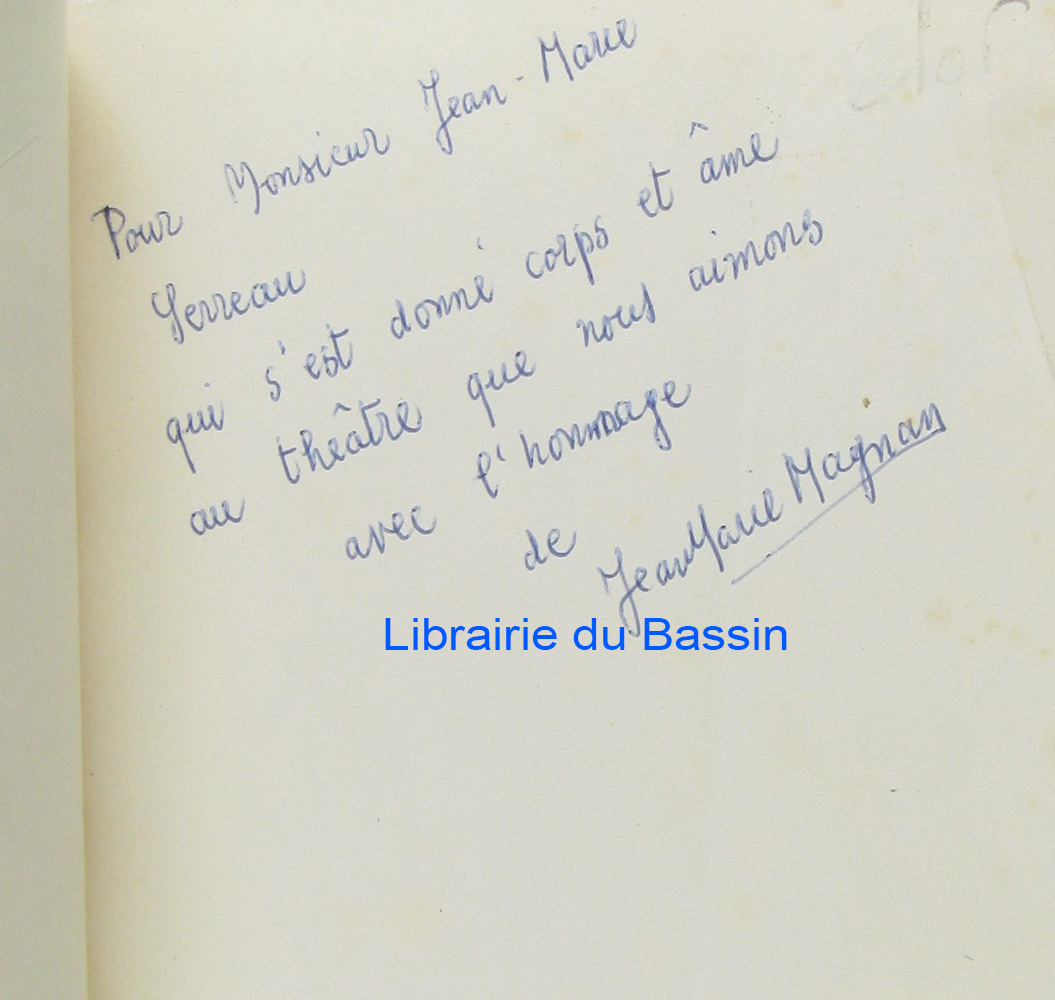 Pour Monsieur Jean-Marie
Serreau
qui s'est donné corps et âme
au théâtre que nous aimons
avec l'hommage
de
Jean Marie Magnan
Librairie du Bassin